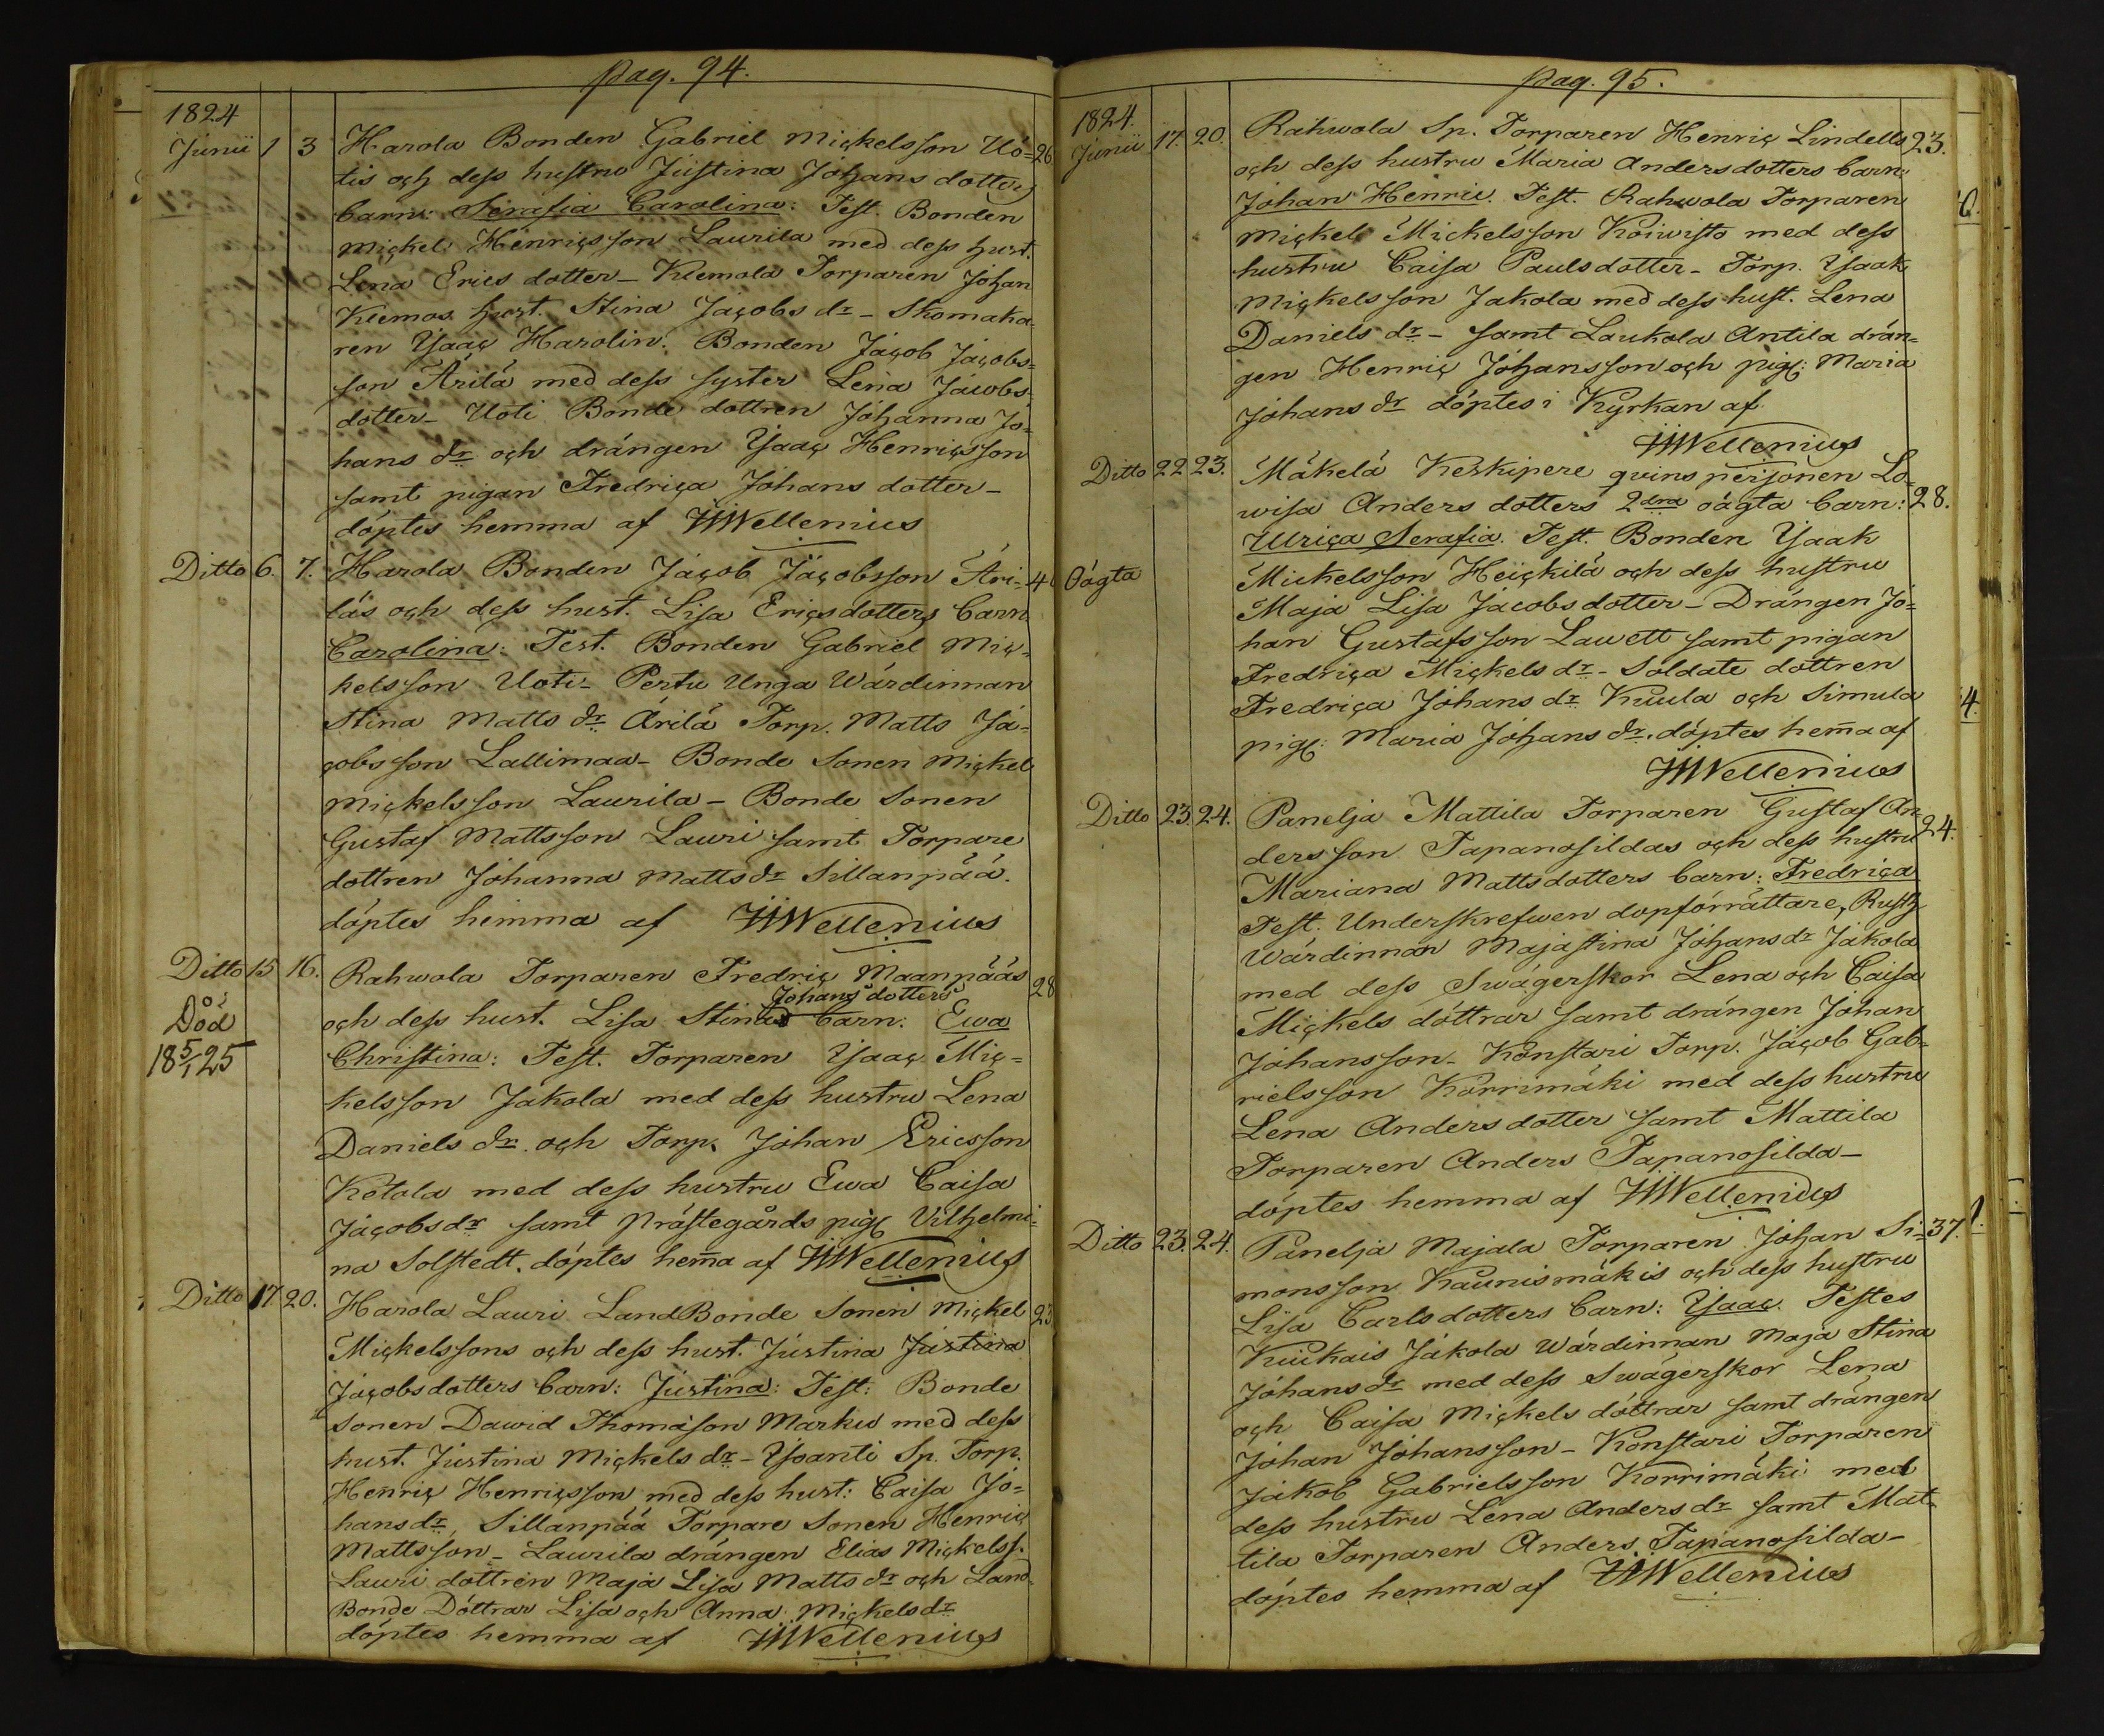 pag. 94.
1824
Junii 1 3 Harola Bonden Gabriel Mickelsson Uo= 26
tis och dess hustru Justina Johans dotters
barn: Serafia Carolina: Test. Bonden
Mickel Henricsson Laurila med dess hust.
Lena Erics dotter – Kiemola Torparen Johan
Kiemos hust. Stina Jacobs dr – Skomaka-
ren Ysaac Harolin. Bonden Jacob Jacobs=
son Ärilä med dess syster Lena Jacobs-
dotter – Uoti Bonde dottren Johanna Jo=
hans dr och drängen Ysaac Henricsson
samt pigan Fredrica Johans dotter –
döptes hemma af Wellenius
Ditto 6. 7. Harola Bonden Jacob Jacobsson Äri-
läs och dess hust. Lisa Ericsdotters barn
Carolina: Test. Bonden Gabriel Mic-
kelsson Uoti – Pertu Unga Wärdinnan
Stina Matts dr Ärilä Torp. Matts Ja=
cobsson Lallimaa – Bonde Sonen Mickel
Mickelsson Laurila – Bonde Sonen
Gustaf Mattsson Lauri samt Torpare
dottren Johanna Matts dr Sillanpää.
döptes hemma af Wellenius
Ditto 15 16. Rahwola Torparen Fredric Maanpääs 28
Johans dotters
och dess hust. Lisa Stinas barn: Ewa
Död
18 5/1 25
Christina: Test. Torparen Ysaac Mic=
kelsson Jakola med dess hustru Lena
Daniels dr. och Torp. Johan Ericsson
Ketola med dess hustru Ewa Caisa
Jacobs dr samt Prästegårds pig. Vilhelmi=
na Solstedt. döptes hem̄a af Wellenius
Ditto 17. 20. Harola Lauri LandBonde Sonen Mickel 23
Mickelssons och dess hust. Justina Justina
Jacobs dotters barn: Justina: Test: Bonde
Sonen Dawid Thomasson Marku med dess
hust. Justina Mickels dr – Ysoanti Sp. Torp.
Henric Henricsson med dess hust: Caisa Jo=
hans dr, Sillanpää Torpare Sonen Henric
Mattsson – Laurila drängen Elias Mickelss.
Lauri dottren Maja Lisa Matts dr och Land-
Bonde Döttrar Lisa och Anna Mickels dr
döptes hemma af Wellenius
pag. 95.
1824.
Junii 17. 20. Rahwola Sp. Torparen Henric Lindells 23.
och dess hustru Maria Andersdotters barn:
Johan Henric. Test. Rahwola Torparen
Mickel Mickelsson Koiwisto med dess
hustru Caisa Paulsdotter – Torp. Ysaak
Mickelsson Jakola med dess hust. Lena
Daniels dr – samt Laukola Antila drän=
gen Henric Johansson och pig: Maria
Johans dr döptes i Kyrkan af
Wellenius
Ditto 22 23. Mäkelä Keskipere qvinspersonen Lo-
wisa Anders dotters 2dra oägta barn: 28.
Ulrica Serafia. Test. Bonden Ysaak
Oägta
Mickelsson Heickilä och dess hustru
Maja Lisa Jacobs dotter – Drängen Jo=
han Gustafsson Lauett samt pigan
Fredrica Mickels dr – Soldate dottren
Fredrica Johans dr Kuula och Simula
pig: Maria Johans dr. döptes hem̄a af
Wellenius
Ditto 23. 24. Panelja Mattila Torparen Gustaf An 24.
dersson Tapanosildas och dess hustru
Mariana Mattsdotters barn: Fredrica
Test. Underskrefwen dopförrättare, Rusth
Wärdinnan Majastina Johans dr Jakola
med dess Swägerskor Lena och Caisa
Mickels döttrar samt drängen Johan
Johansson – Konstari Torp. Jacob Gab=
rielsson Korrimäki med dess hustru
Lena Anders dotter samt Mattila
Torparen Anders Tapanosilda –
döptes hemma af Wellenius
Ditto 23. 24. Panelja Majala Torparen Johan Si= 37.
monsson Kaunismäkis och dess hustru
Lisa Carlsdotters barn: Ysaac. Testes
Kiukais Jakola Wärdinnan Maja Stina
Johans dr med dess Swägerskor Lena
och Caisa Mickels döttrar samt drängen
Johan Johansson – Konstari Torparen
Jakob Gabrielsson Korrimäki med
dess hustru Lena Anders dr samt Mat-
tila Torparen Anders Tapanosilda –
döptes hemma af Wellenius